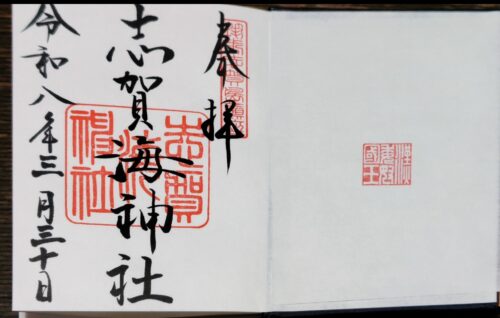 漢
委奴
國王
奉拝
志賀海神社
志賀
海
神社
令和八年三月三十日